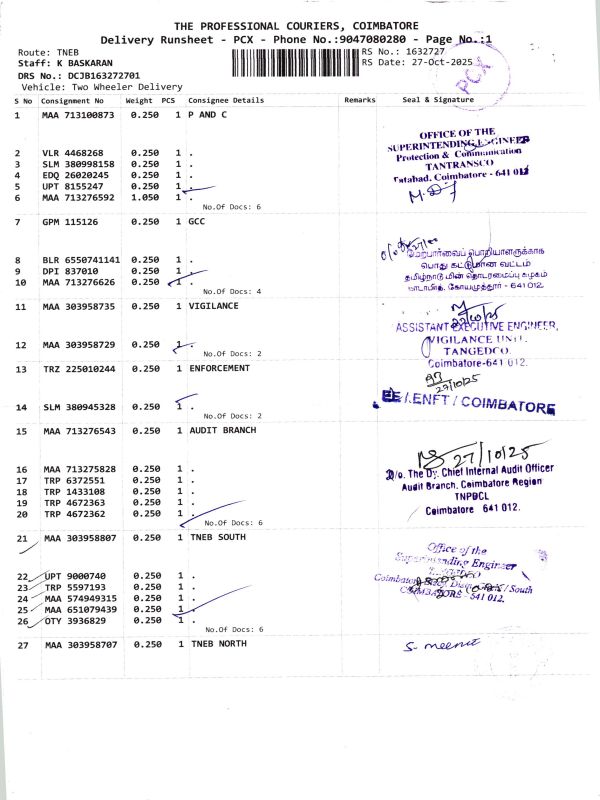 THE PROFESSIONAL COURIERS, COIMBATORE
Delivery Runsheet - PCX - Phone No.:9047080280 - Page No.:1
Route: TNEB
RS No.: 1632727
Staff: K BASKARAN
RS Date: 27-Oct-2025
DRS No.: DCJB163272701
Vehicle: Two Wheeler Delivery
PCX
S No Consignment No Weight PCS Consignee Details Remarks Seal & Signature
1 MAA 713100873 0.250 1 P AND C
2 VLR 4468268 0.250 1 .
3 SLM 380998158 0.250 1 .
4 EDQ 26020245 0.250 1 .
5 UPT 8155247 0.250 1 .
6 MAA 713276592 1.050 1 .
No.Of Docs: 6
OFFICE OF THE
SUPERINTENDING ENGINEER
Protection & Communication
TANTRANSCO
Tatabad, Coimbatore - 641 012
7 GPM 115126 0.250 1 GCC
8 BLR 6550741141 0.250 1 .
9 DPI 837010 0.250 1 .
10 MAA 713276626 0.250 1 .
No.Of Docs: 4
மேற்பார்வைப் பொறியாளருக்காக
பொது கட்டுமான வட்டம்
தமிழ்நாடு மின் தொடரமைப்பு கழகம்
டாடாபாத், கோயமுத்தூர் - 641 012.
11 MAA 303958735 0.250 1 VIGILANCE
12 MAA 303958729 0.250 1 .
No.Of Docs: 2
27/10/25
ASSISTANT EXECUTIVE ENGINEER,
VIGILANCE UNIT,
TANGEDCO.
Coimbatore-641 012.
13 TRZ 225010244 0.250 1 ENFORCEMENT
14 SLM 380945328 0.250 1 .
No.Of Docs: 2
27/10/25
EE / ENFT / COIMBATORE
15 MAA 713276543 0.250 1 AUDIT BRANCH
16 MAA 713275828 0.250 1 .
17 TRP 6372551 0.250 1 .
18 TRP 1433108 0.250 1 .
19 TRP 4672363 0.250 1 .
20 TRP 4672362 0.250 1 .
No.Of Docs: 6
27/10/25
O/o. The Dy. Chief Internal Audit Officer
Audit Branch, Coimbatore Region
TNPDCL
Coimbatore 641 012.
21 MAA 303958807 0.250 1 TNEB SOUTH
22 UPT 9000740 0.250 1 .
23 TRP 5597193 0.250 1 .
24 MAA 574949315 0.250 1 .
25 MAA 651079439 0.250 1 .
26 OTY 3936829 0.250 1 .
No.Of Docs: 6
Office of the
Superintending Engineer
South
COIMBATORE - 641 012.
27 MAA 303958707 0.250 1 TNEB NORTH
S. meena